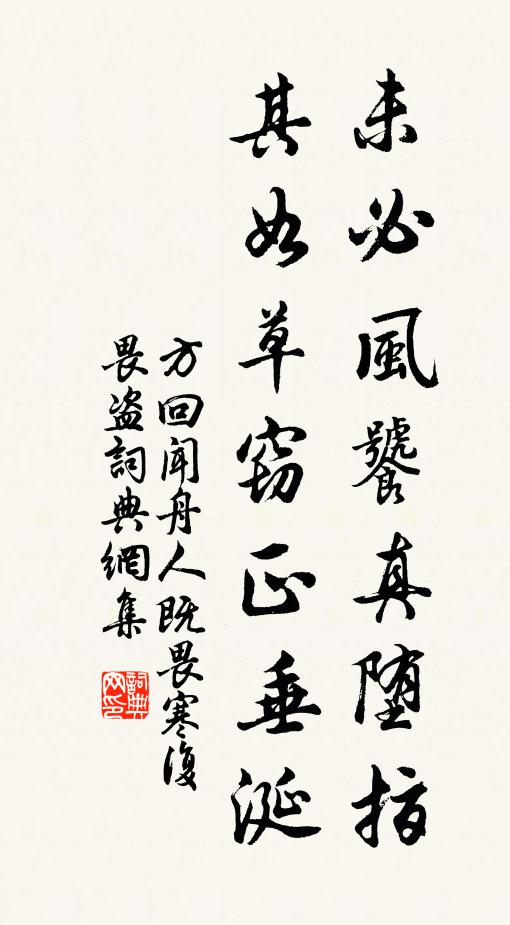 未必風饕真堕指
其如草竊正垂涎
方回聞舟人既畏寒復
畏盗詞典網集
詞典网印